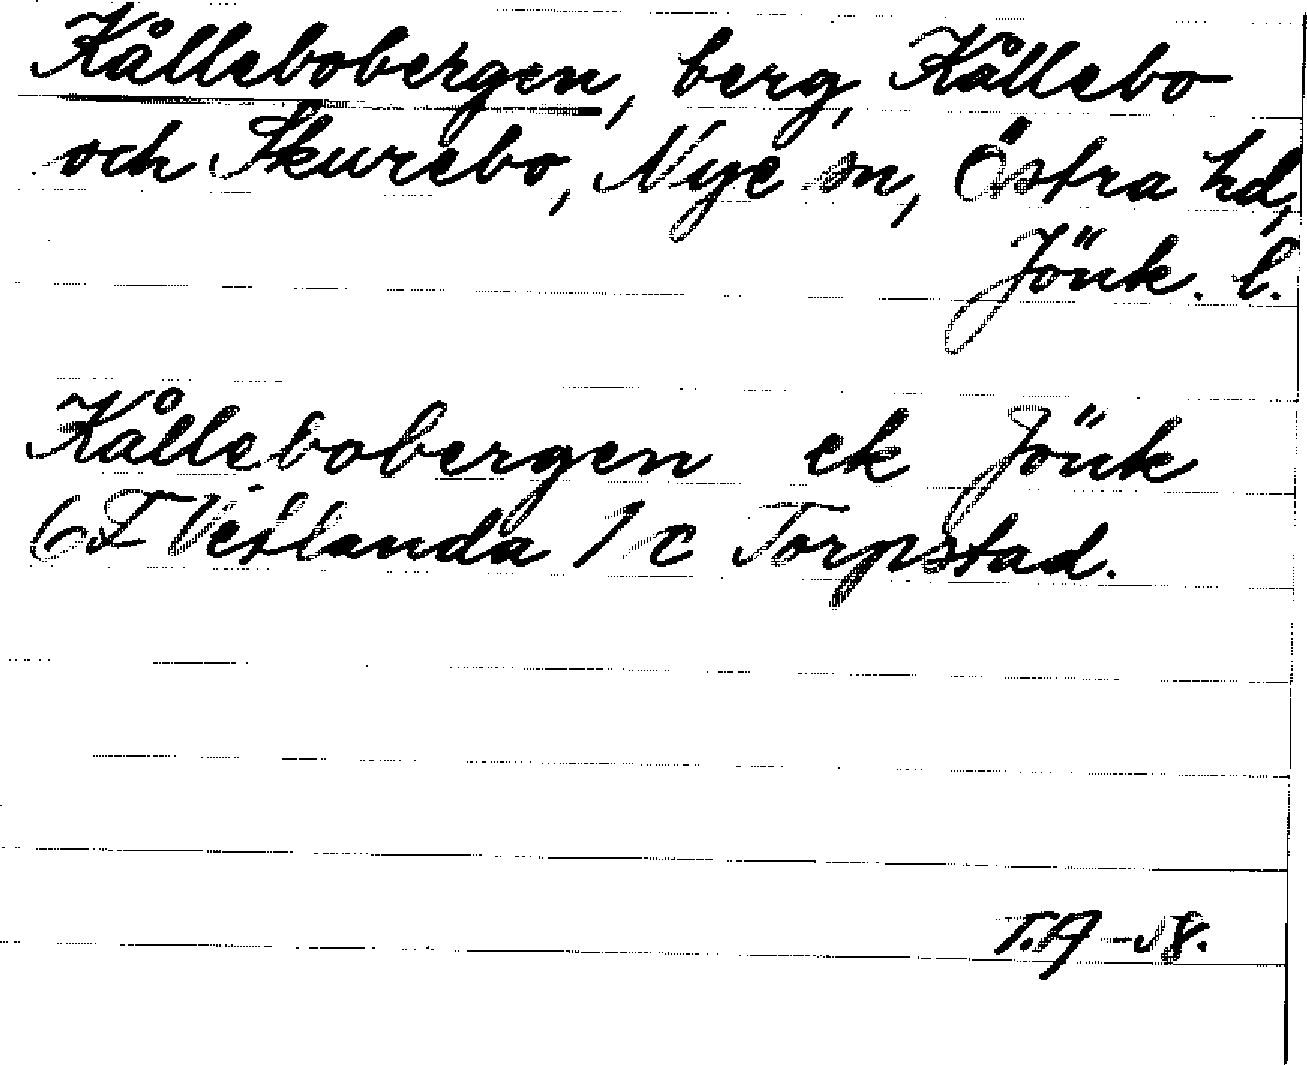 Kållebobergen, berg, Kållebo
och Skurebo, Nye sn, Östra hd,
Jönk. l.
Kållebobergen ek Jönk
6F Vetlanda 1 c Torpstad.
T.A -58.